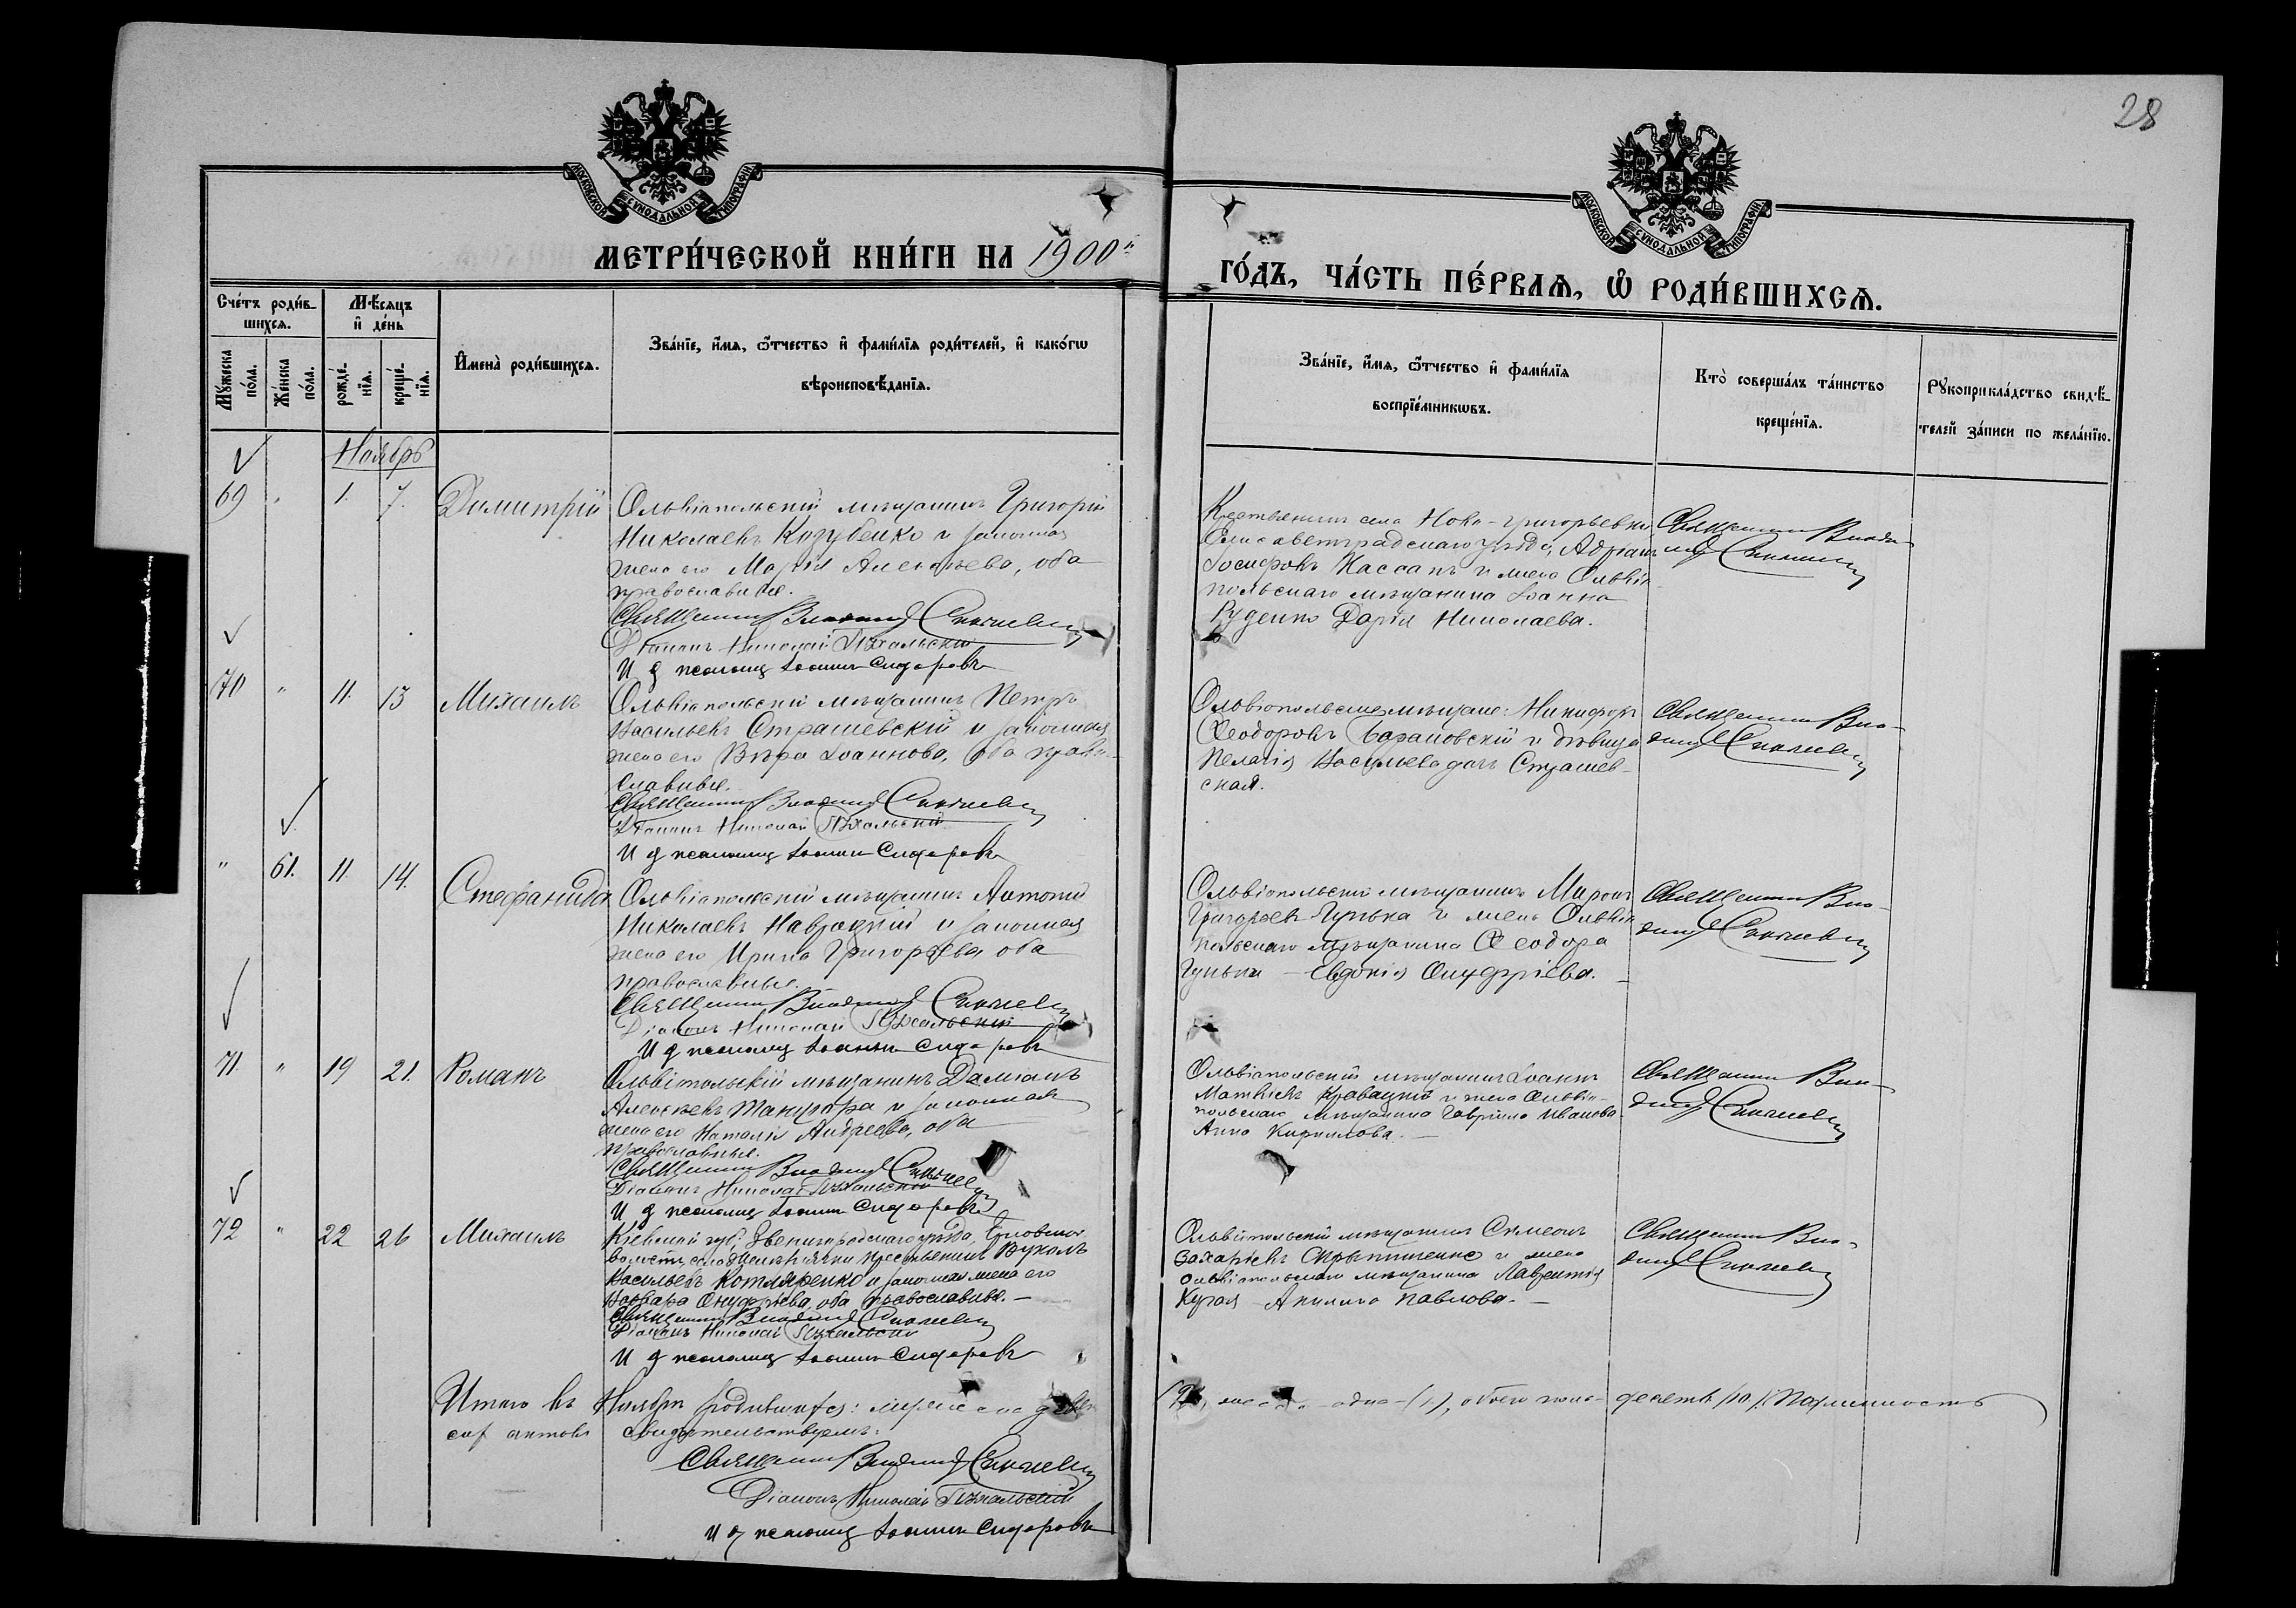 28
МОСКОВСКОЙ СУНОДАЛЬНОЙ ТИПОГРАФІИ
МОСКОВСКОЙ СУНОДАЛЬНОЙ ТИПОГРАФІИ
МЕТРИ́ЧЕСКОЙ КНИ́ГИ НА 1900
ГО́ДЪ, ЧА́СТЬ ПЕ́РВАѦ, Ѡ҆ РОДИ́ВШИХСѦ.
Сче́тъ роди́в-
шихсѧ.
Мꙋ́жеска
по́ла.
Же́нска
по́ла.
Мѣ́сяцъ
и҆ де́нь
рожде́-
нїѧ.
креще́-
нїѧ.
И҆мена̀ роди́вшихсѧ.
Зва́нїе, и҆́мѧ, ѻ҆́тчество и҆ фами́лїѧ роди́телей, и҆ како́гѡ
вѣроисповѣ́данїѧ.
Зва́нїе, и҆́мѧ, ѻ҆́тчество и҆ фами́лїѧ
воспрїе́мникѡвъ.
Кто̀ соверша́лъ та́инство
креще́нїѧ.
Рꙋкоприкла́дство свидѣ́-
телей за́писи по жела́нїю.
Ноябрь
69 " 1. 7. Димитрій
Ольвіопольскій мѣщанинъ Григорій
Николаевъ Козубенко и законная
жена его Марія Алексѣева, оба
православные.
Священникъ Владимір
Діаконъ Николай
И д псаломщ Іоаннъ Сидоровъ
Крестьянинъ села Ново-Григорьевки
Елисаветградскаго уѣзда, Адріанъ
Іосифовъ Кассапъ и жена Ольвіо-
польскаго мѣщанина Іоанна
Руденко Дарія Николаева.
Священникъ Влади-
мір
70 " 11. 13 Михаилъ
Ольвіопольскій мѣщанинъ Петръ
Васильевъ Страшевскій и законная
жена его Вѣра Іоаннова, оба право-
славные.
Священникъ Владимір
Діаконъ Николай
И д псаломщ Іоаннъ Сидоровъ
Ольвіопольскіе мѣщане: Никифоръ
Ѳеодоровъ Барановскій и дѣвица
Пелагія Васильева дочь Страшев-
ская.
Священникъ Вла-
димір
" 61. 11. 14. Стефанида
Ольвіопольскій мѣщанинъ Антоній
Николаевъ Навроцкій и законная
жена его Ирина Григорьева оба
православные.
Священникъ Владимір
Діаконъ Николай
И д псаломщ Іоаннъ Сидоровъ
Ольвіопольскій мѣщанинъ Миронъ
Григорьевъ Гунька и жена Ольвіо-
польскаго мѣщанина Ѳеодора
Гуньки - Евдокія Онуфріева.
Священникъ Вла-
димір
71. " 19 21. Романъ
Ольвіопольскій мѣщанинъ Даміанъ
Алексѣевъ и законная
жена его Наталія Андреева, оба
православные.
Священникъ Владимір
Діаконъ Николай
И д псаломщ Іоаннъ Сидоровъ
Ольвіопольскій мѣщанинъ Іоаннъ
Матвѣевъ и жена Ольвіо-
польскаго мѣщанина Гавріила Иванова
Анна Кириллова.
Священникъ Вла-
димір
72 " 22 26 Михаилъ
Кіевской губ, Звенигородскаго уѣзда,
волости, крестьянинъ Вуколъ
Васильевъ Котляренко и законная жена его
Варвара Онуфріева, оба православные.
Священникъ Владимір
Діаконъ Николай
И д псаломщ Іоаннъ Сидоровъ
Ольвіопольскій мѣщанинъ Симеонъ
Захаріевъ и жена
Ольвіопольскаго мѣщанина Лаврентія
Павлова.
Священникъ Вла-
димір
Итого въ Ноябрѣ родившихся: одна (1), обоего пола десять (10).
сихъ актовъ свидѣтельствуемъ:
Священникъ Владимір
Діаконъ Николай
И д псаломщ Іоаннъ Сидоровъ